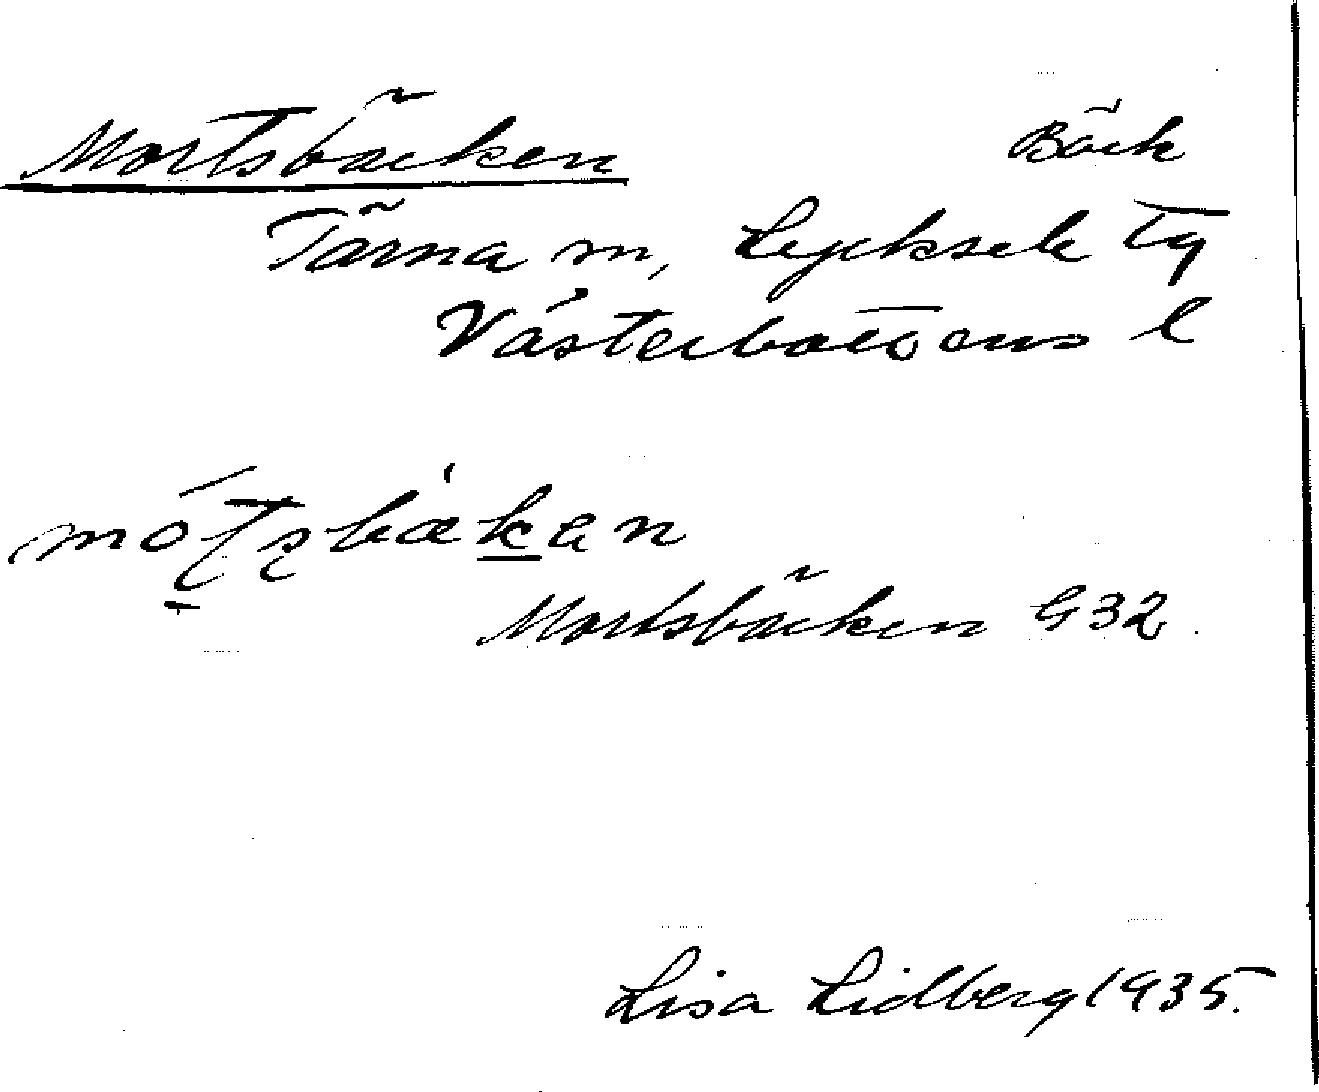 Mortsbäcken Bäck
Tärna sn, Lycksele tg
Västerbottens l
Mortsbäcken G32
Lisa Lidberg 1935.